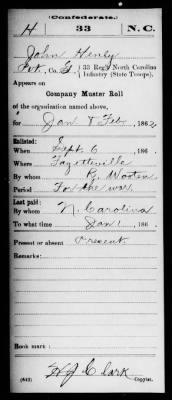 (Confederate.)
H 33 N.C.
John Henry
Pvt, Co. G, 33 Reg't North Carolina
Infantry (State Troops).
Appears on
Company Muster Roll
of the organization named above,
for Jan & Feb, 1862.
Enlisted:
When Sept. 6, 186
Where Fayetteville
By whom R. Wooten
Period For the war
Last paid:
By whom N. Carolina
To what time Jan 1, 186
Present or absent Present
Remarks:
Book mark:
H J Clark
(642) Copyist.